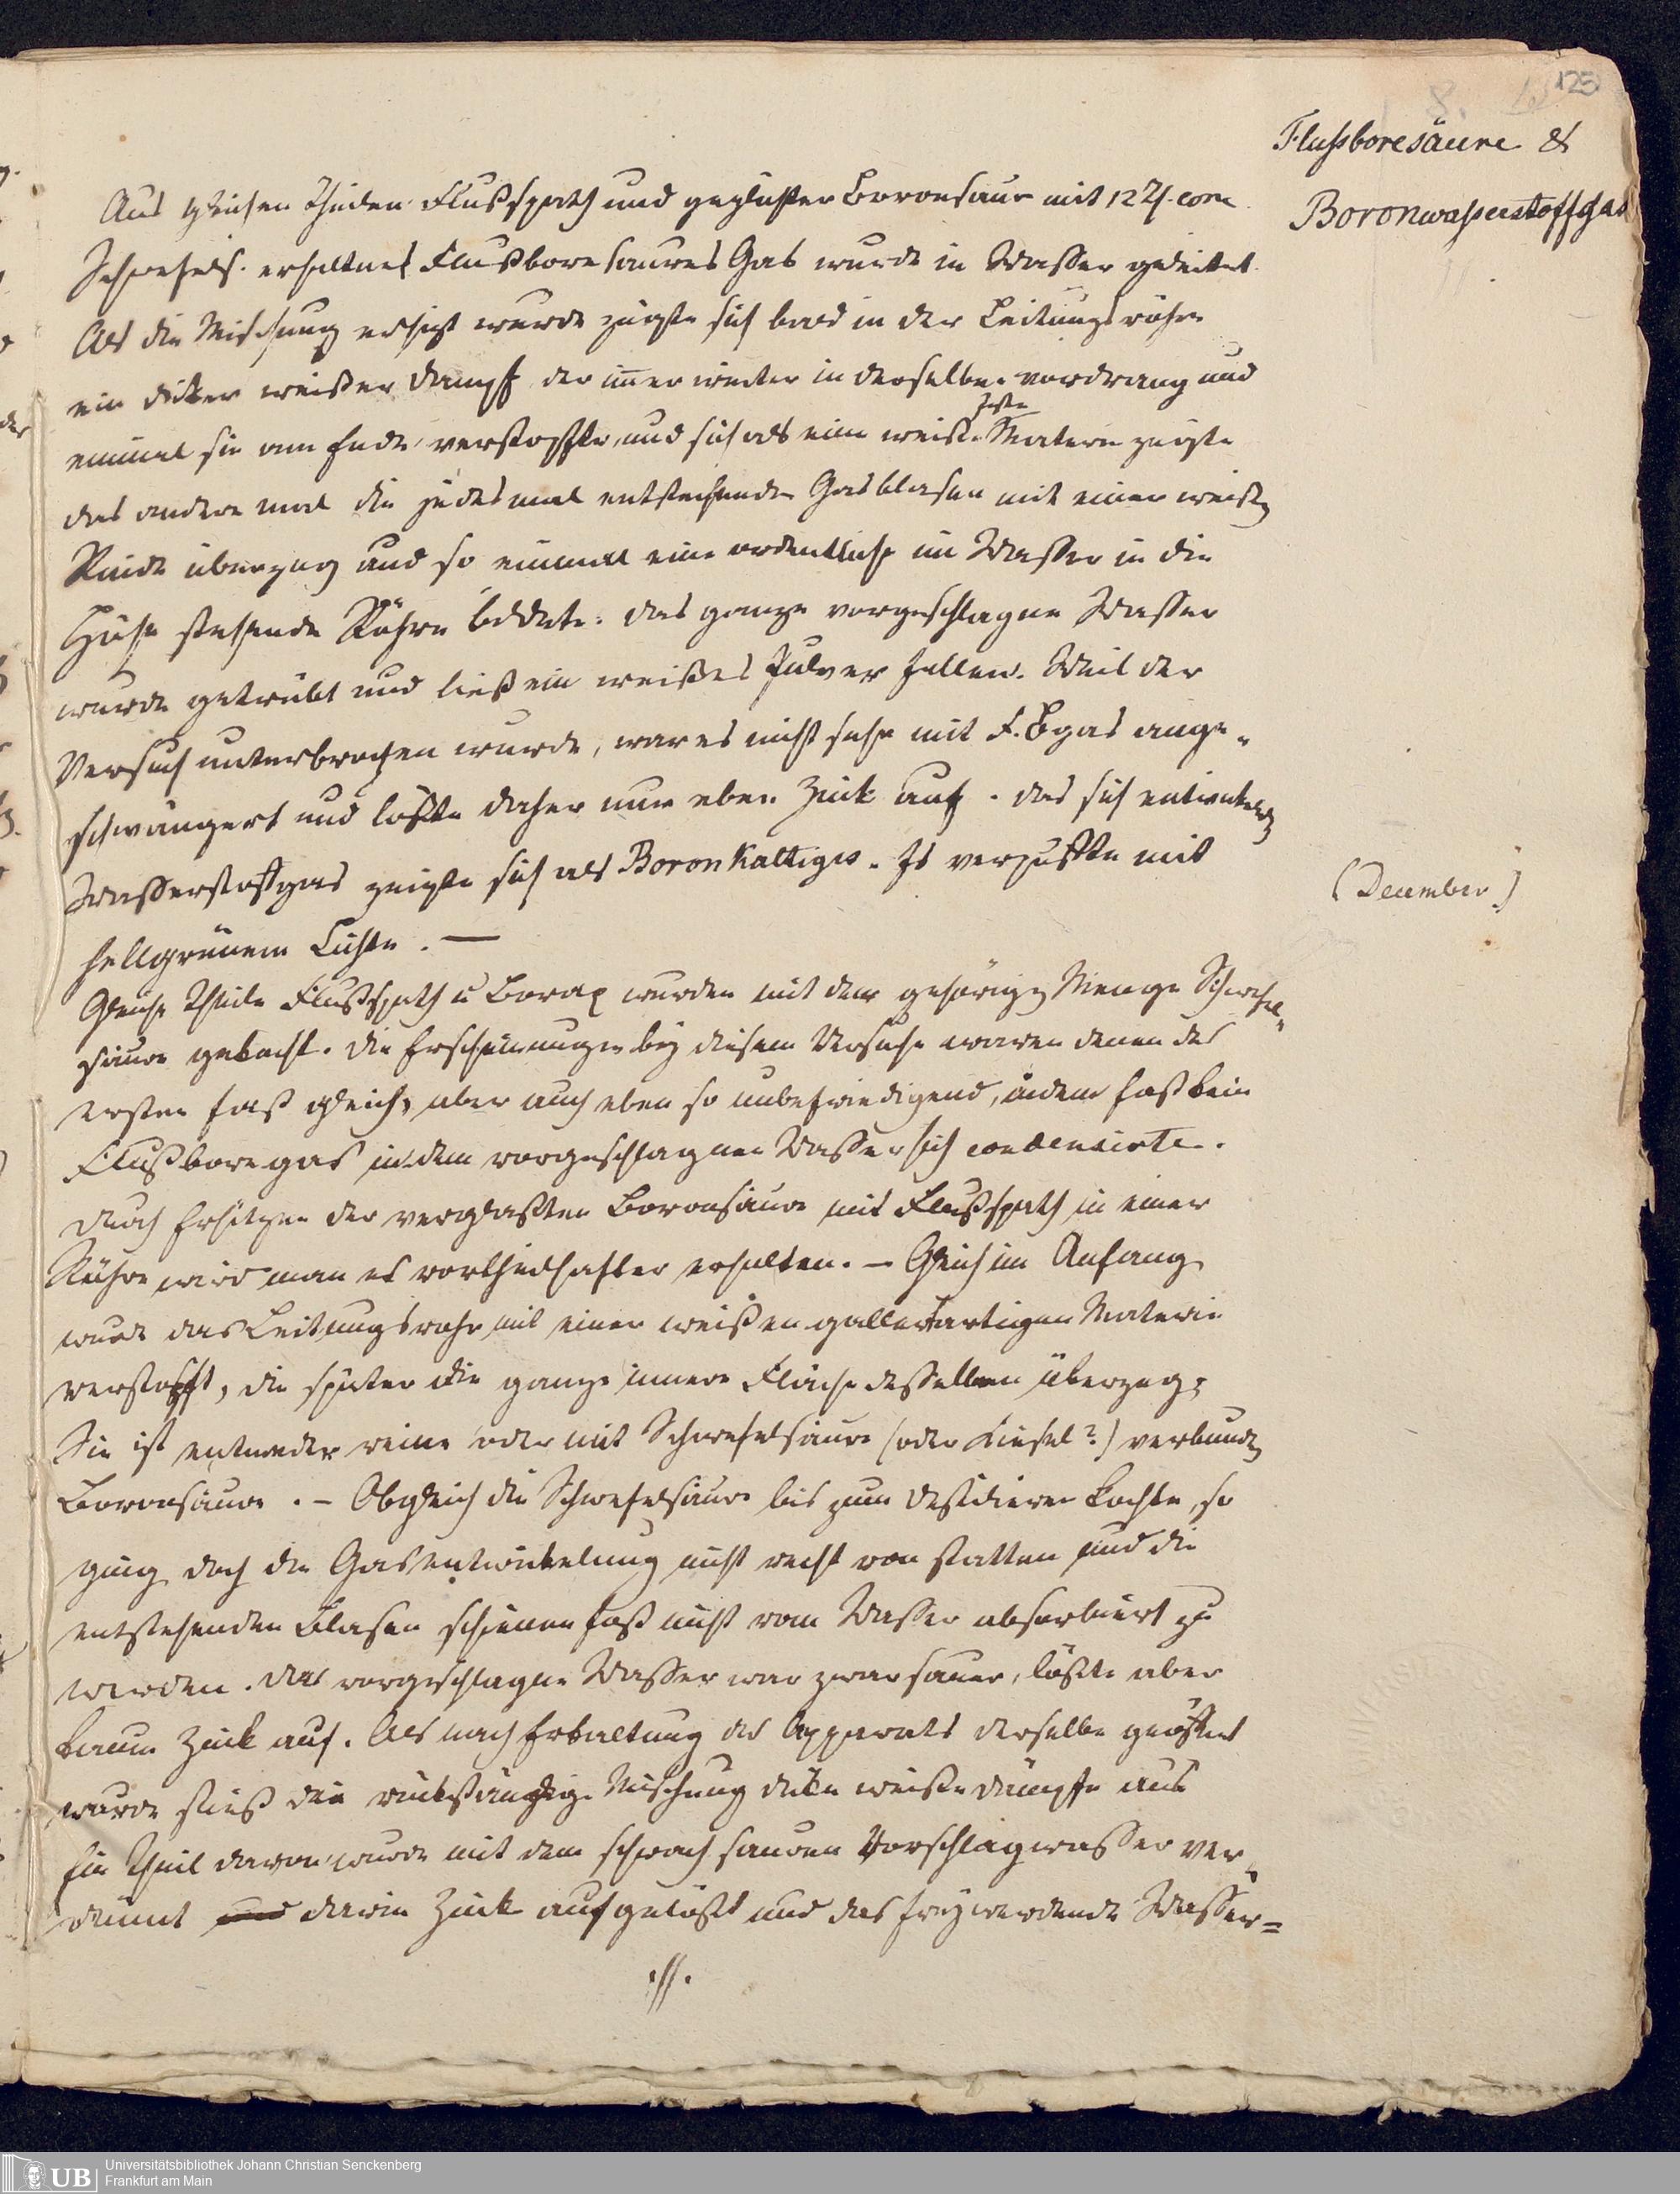 125
Flußboresäure &
Boronwasserstoffgas
Aus gleichen Theilen Flußspath und geglühter Boronsäure mit 12 Th. conc.
Schwefels. erhaltnes Flußboresaures Gas wurde in Wasser geleitet.
Als die Mischung erhizt wurde zeigte sich bald in der Leitungsröhre
ein diker weißer Dampf der im̄er weiter in derselben vordrang und
einmal sie am Ende verstopfte, und sich als eine weiße feste Materie zeigte
das andere mal die jedesmal entstehenden Gasblasen mit einer weißen
Rinde überzog und so einmal eine ordentliche im Wasser in die
Höhe stehende Röhre bildete. Das ganze vorgeschlagne Wasser
wurde getrübt und ließ ein weißes Pulver fallen. Weil der
Versuch unterbrochen wurde, war es nicht sehr mit F.Bgas ange-
schwängert und lößte daher nur eben Zink auf. Das sich entwikelnde
Wasserstoffgas zeigte sich als Boronhaltiges. Es verpuffte mit
hellgrünem Lichte. —
(December.)
Gleiche Theile Flußspath u Borax wurden mit der gehörigen Menge Schwefel-
säure gekocht. Die Erscheinungen bey diesem Versuche waren denen des
ersten fast gleich, aber auch eben so unbefriedigend, indem fast kein
Flußboregas in dem vorgeschlagnen Wasser sich condensirte.
Durch Erhitzen der verglaßten Boronsäure mit Flußspath in einer
Röhre wird man es vortheilhafter erhalten. — Gleich im Anfang
wurde das Leitungsrohr mit einer weißen gallertartigen Materie
verstopft, die später die ganze innere Fläche desselben überzog;
Sie ist entweder reine oder mit Schwefelsäure (oder Kiesel?) verbunden
Boronsäure. — Obgleich die Schwefelsäure bis zum Destilieren kochte, so
ging doch die Gasentwickelung nicht recht von statten und die
entstehenden Blasen schienen fast nicht vom Wasser absorbiert zu
werden. Das vorgeschlagne Wasser war zwar sauer, lößte aber
kaum Zink auf. Als nach Erkaltung des Apparats derselbe geöffnet
wurde stieß die rückständige Mischung dicke weiße Dämpfe aus
Ein Theil davon wurde mit dem schwach sauren Vorschlagwasser ver-
dünnt und darin Zink aufgelößt und das freywerdende Wasser=
.//.
UB Universitätsbibliothek Johann Christian Senckenberg
Frankfurt am Main